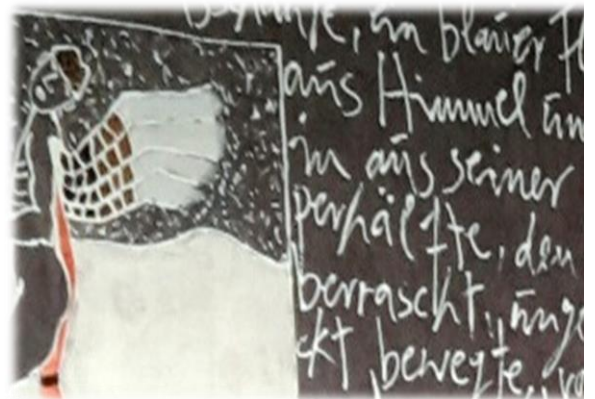 , ein blauer
aus Himmel
in aus seiner
perhälfte, den
berrascht, unge
ckt, bewegte,